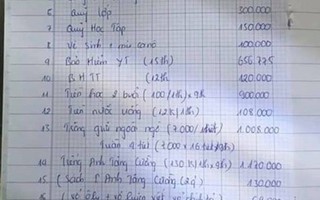 6 Quỹ lớp 300.000
7 Quỹ Học Tập 150.000
8 Vệ sinh + 100.000
9 Bảo Hiểm YT (15th) 656.775
10 BHTT (12th) 120.000
11 Tiền học 2 buổi (100/1th) x 9h 900.000
12 Tiền nước uống (12K/1th) 108.000
13 Tiếng ngoài (7.000/tiết) 1.008.000
Tuần 4 tiết (7.000 x 16 tiết/9h)
14 Tiếng Anh Tăng Cường (130K/1th x 9h) 1.170.000
15 (Sách T Anh Tăng Cường (2q) 130.000